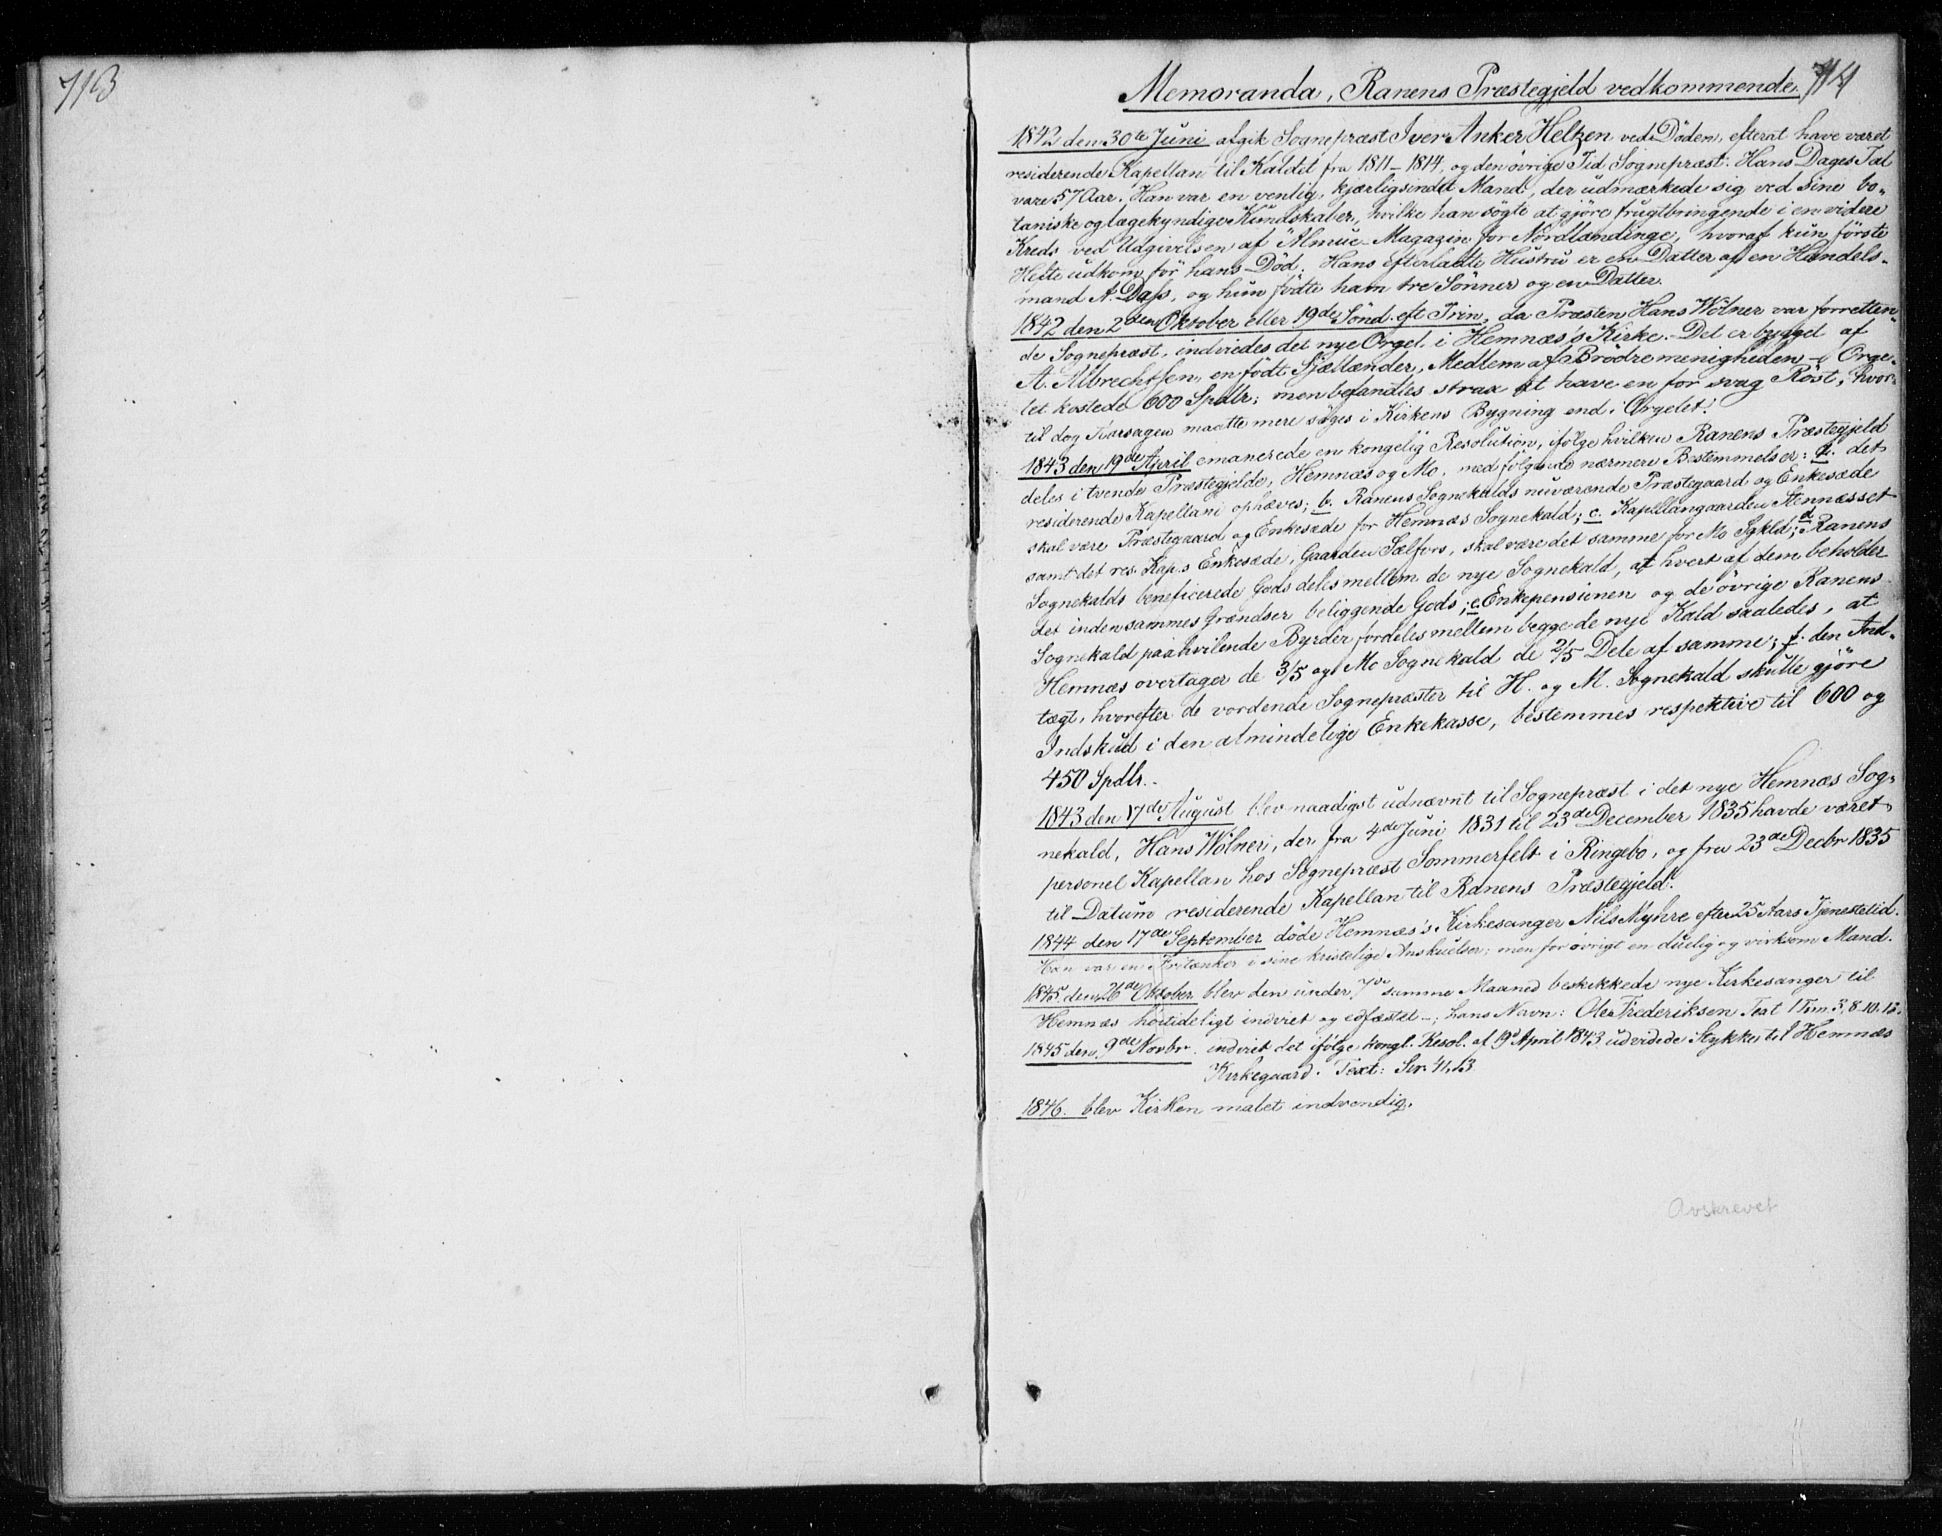 713
714
Memoranda, Ranens Præstegjeld vedkommende.
1842 den 30te Juni afgik Sognepræst Iver Anker Heltzen ved Döden, efterat have været
residerende Kapellan til Kaldet fra 1811-1814, og den övrige Tid Sognepræst. Hans Dages Tal
vare 57 Aar. Han var en venlig, kjærligsindet Mand, der udmærkede sig ved sine bo-
taniske og lægekyndige Kundskaber, hvilke han sögte at gjöre frugtbringende i en videre
Kreds ved Udgivelsen af "Almue-Magazin for Nordlændinge", hvoraf kun förste
Hefte udkom för hans Död. Hans efterladte Hustru er en Datter af en Handels-
mand A. Dass, og hun födte ham tre Sönner og en Datter.
1842 den 2den Oktober eller 19de Sönd. eft Trin. da Præsten Hans Wölner var forretten-
de Sognepræst, indviedes det nye Orgel i Hemnæs's Kirke. Det er bygget af
A. Albrechtsen, en födt Sjællænder, Medlem af Brödremenigheden - Orge-
let kostede 600 Spdlr; men befandtes strax at have en for svag Röst, hvor-
til dog Aarsagen maatte mere söges i Kirkens Bygning end i Orgelet.
1843 den 19de April emanerede en kongelig Resolution, ifölge hvilken Ranens Præstegjeld
deles i tvende Præstegjelde, Hemnæs og Mo, med fölgende nærmere Bestemmelser: a. det
residerende Kapellani ophæves; b. Ranens Sognekalds nuværende Præstegaard og Enkesæde
skal være Præstegaard og Enkesæde for Hemnæs Sognekald; c. Kapellangaarden Stennæsset
samt det res. Kap.s Enkesæde, Gaarden Sælfors, skal være det samme for Mo Sgkld; d. Ranens
Sognekalds beneficerede Gods deles mellem de nye Sognekald, at hvert af dem beholder
det inden sammes Grændser beliggende Gods; e. Enkepensionen og de övrige Ranens
Sognekald paahvilende Byrder fordeles mellem begge de nye Kald saaledes, at
Hemnæs overtager de 3/5 og Mo Sognekald de 2/5 Dele af samme; f. den Ind-
tægt, hvorefter de vordende Sognepræster til H. og M. Sognekald skulle gjöre
Indskud i den almindelige Enkekasse, bestemmes respektive til 600 og
450 Spdlr.
1843 den 17de August blev naadigst udnævnt til Sognepræst i det nye Hemnæs Sog-
nekald, Hans Wölner, der fra 4de Juni 1831 til 23de December 1835 havde været
personel Kapellan hos Sognepræst Sommerfelt i Ringebo, og fra 23de Decbr 1835
til Datum residerende Kapellan til Ranens Præstegjeld.
1844 den 17de September döde Hemnæs's Kirkesanger Nils Myhre efter 25 Aars Tjenestetid.
Han var en Fritænker i sine kristelige Anskuelser; men for övrigt en duelig og virksom Mand.
1845 den 26de Oktober blev den under 7de samme Maaned beskikkede nye Kirkesanger til
Hemnæs höitideligt indviet og edfæstet -; hans Navn: Ole Frederiksen Text 1 Tim 3, 8.10.13.
1845 den 9de Novbr. indviet det ifölge kongl. Resol. af 19d April 1843 udvidede Stykke til Hemnæs
Kirkegaard. Text: Sir. 41,
1846. blev Kirken malet indvendig.
Avskrevet